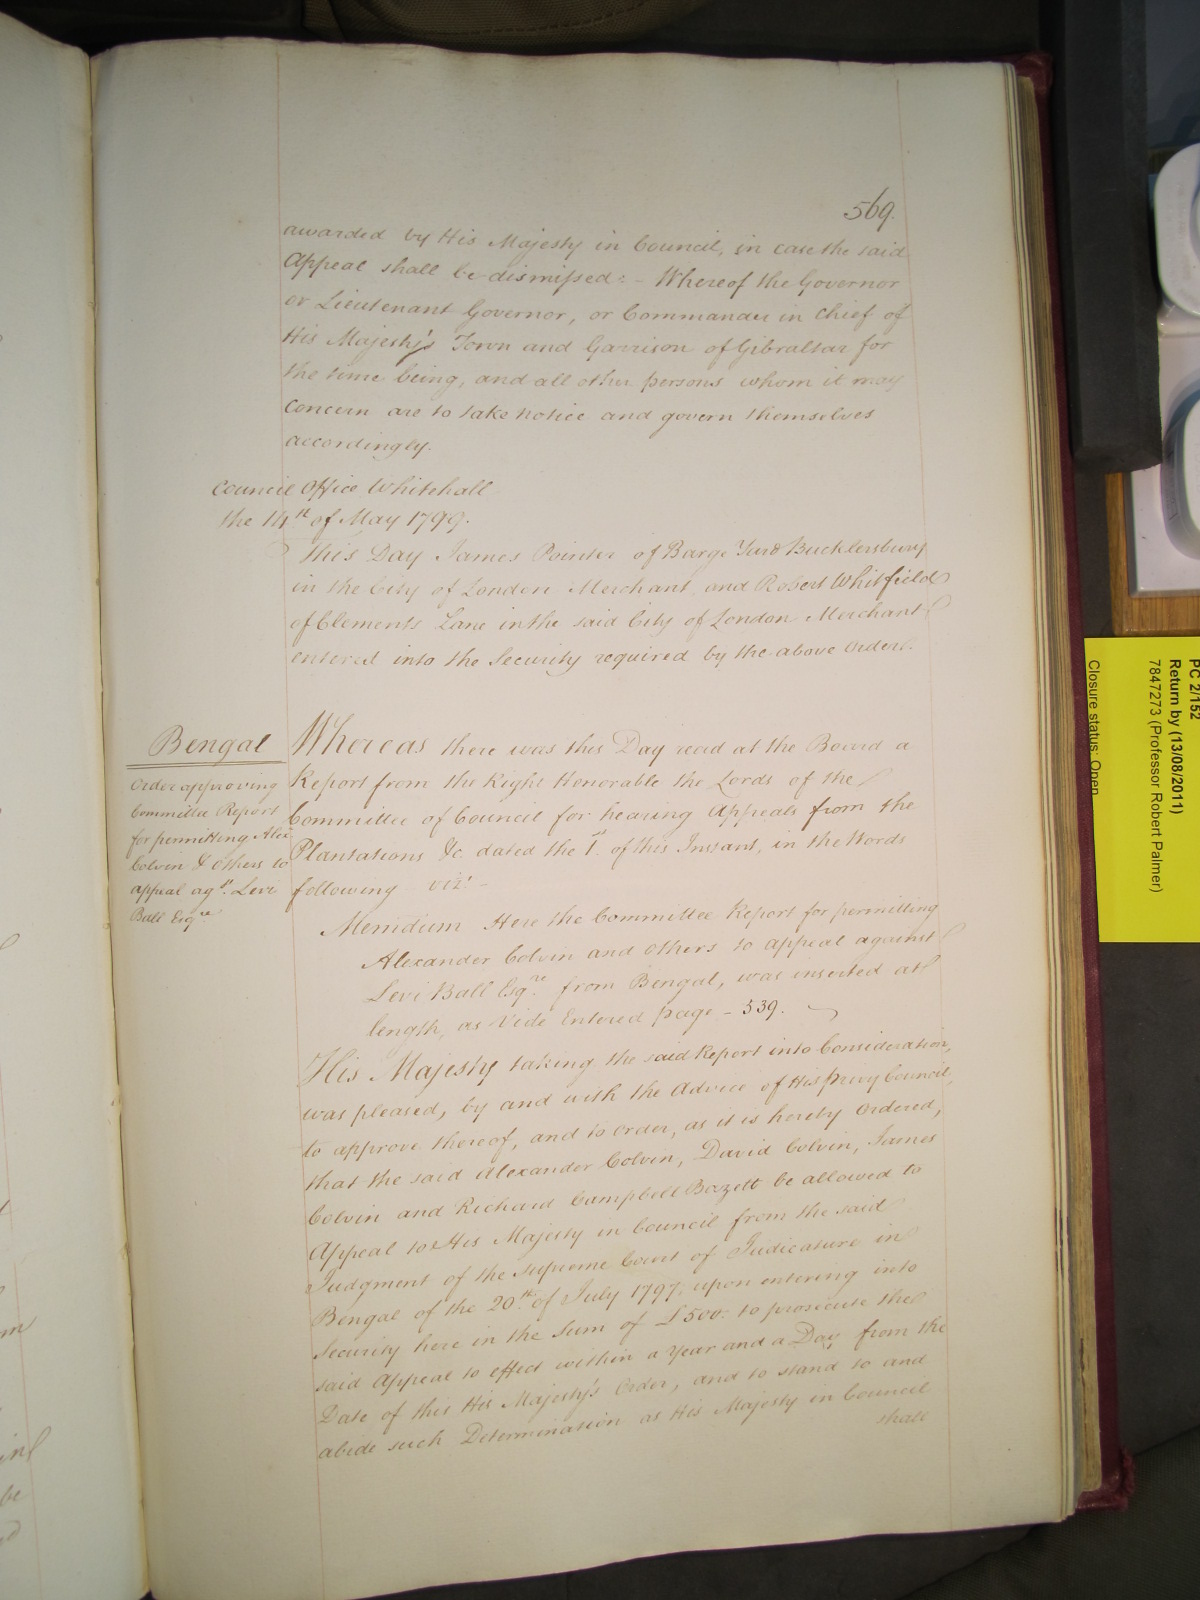 569.
awarded by His Majesty in Council, in case the said
Appeal shall be dismissed: - Whereof the Governor
or Lieutenant Governor, or Commander in Chief of
His Majesty's Town and Garrison of Gibraltar for
the time being, and all other persons whom it may
Concern are to take notice and govern themselves
accordingly.
Council Office Whitehall
the 14th of May 1799.
This Day James Pointer of Barge Yard Bucklersbury
in the City of London Merchant, and Robert Whitfield
of Clements Lane in the said City of London Merchant
entered into the Security required by the above Order.
Bengal
Order approving
Committee Report
for permitting Alexr
Colvin & others to
appeal agst. Levi
Ball Esqre
Whereas there was this Day read at the Board a
Report from the Right Honorable the Lords of the
Committee of Council for hearing Appeals from the
Plantations &c. dated the 1st. of this Instant, in the Words
following vizt. -
Memdum Here the Committee Report for permitting
Alexander Colvin and others to appeal against
Levi Ball Esqre. from Bengal, was inserted at
length, as Vide Entered page - 539.
His Majesty taking the said Report into Consideration,
was pleased, by and with the Advice of His Privy Council,
to approve thereof, and to Order, as it is hereby Ordered,
that the said Alexander Colvin, David Colvin, James
Colvin and Richard Campbell Bazett be allowed to
Appeal to His Majesty in Council from the said
Judgment of the Supreme Court of Judicature in
Bengal of the 20th. of July 1797, upon entering into
Security here in the Sum of £500. to prosecute the
said Appeal to effect within a Year and a Day from the
Date of this His Majesty's Order, and to stand to and
abide such Determination as His Majesty in Council
shall
PC 2/152
Return by (13/08/2011)
7847273 (Professor Robert Palmer)
Closure status: Open